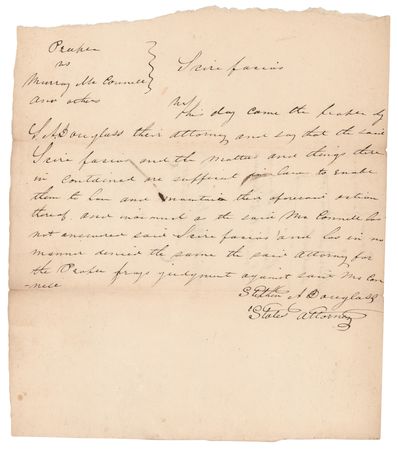 People
vs
Murray McConnell
and others
Scire facias
And
this day came the People by
S. A Douglass their attorney and say that the said
Scire facias and the matters and things there
in contained are sufficent in law to enable
them to have and maintain their aforesaid action
thereof, and inasmuch as the said McConnell has
not answered said Scire facias and has in no
manner denied the same the said attorney for
the People prays judgment against said McCon
Stephen A Douglass
States Attorney